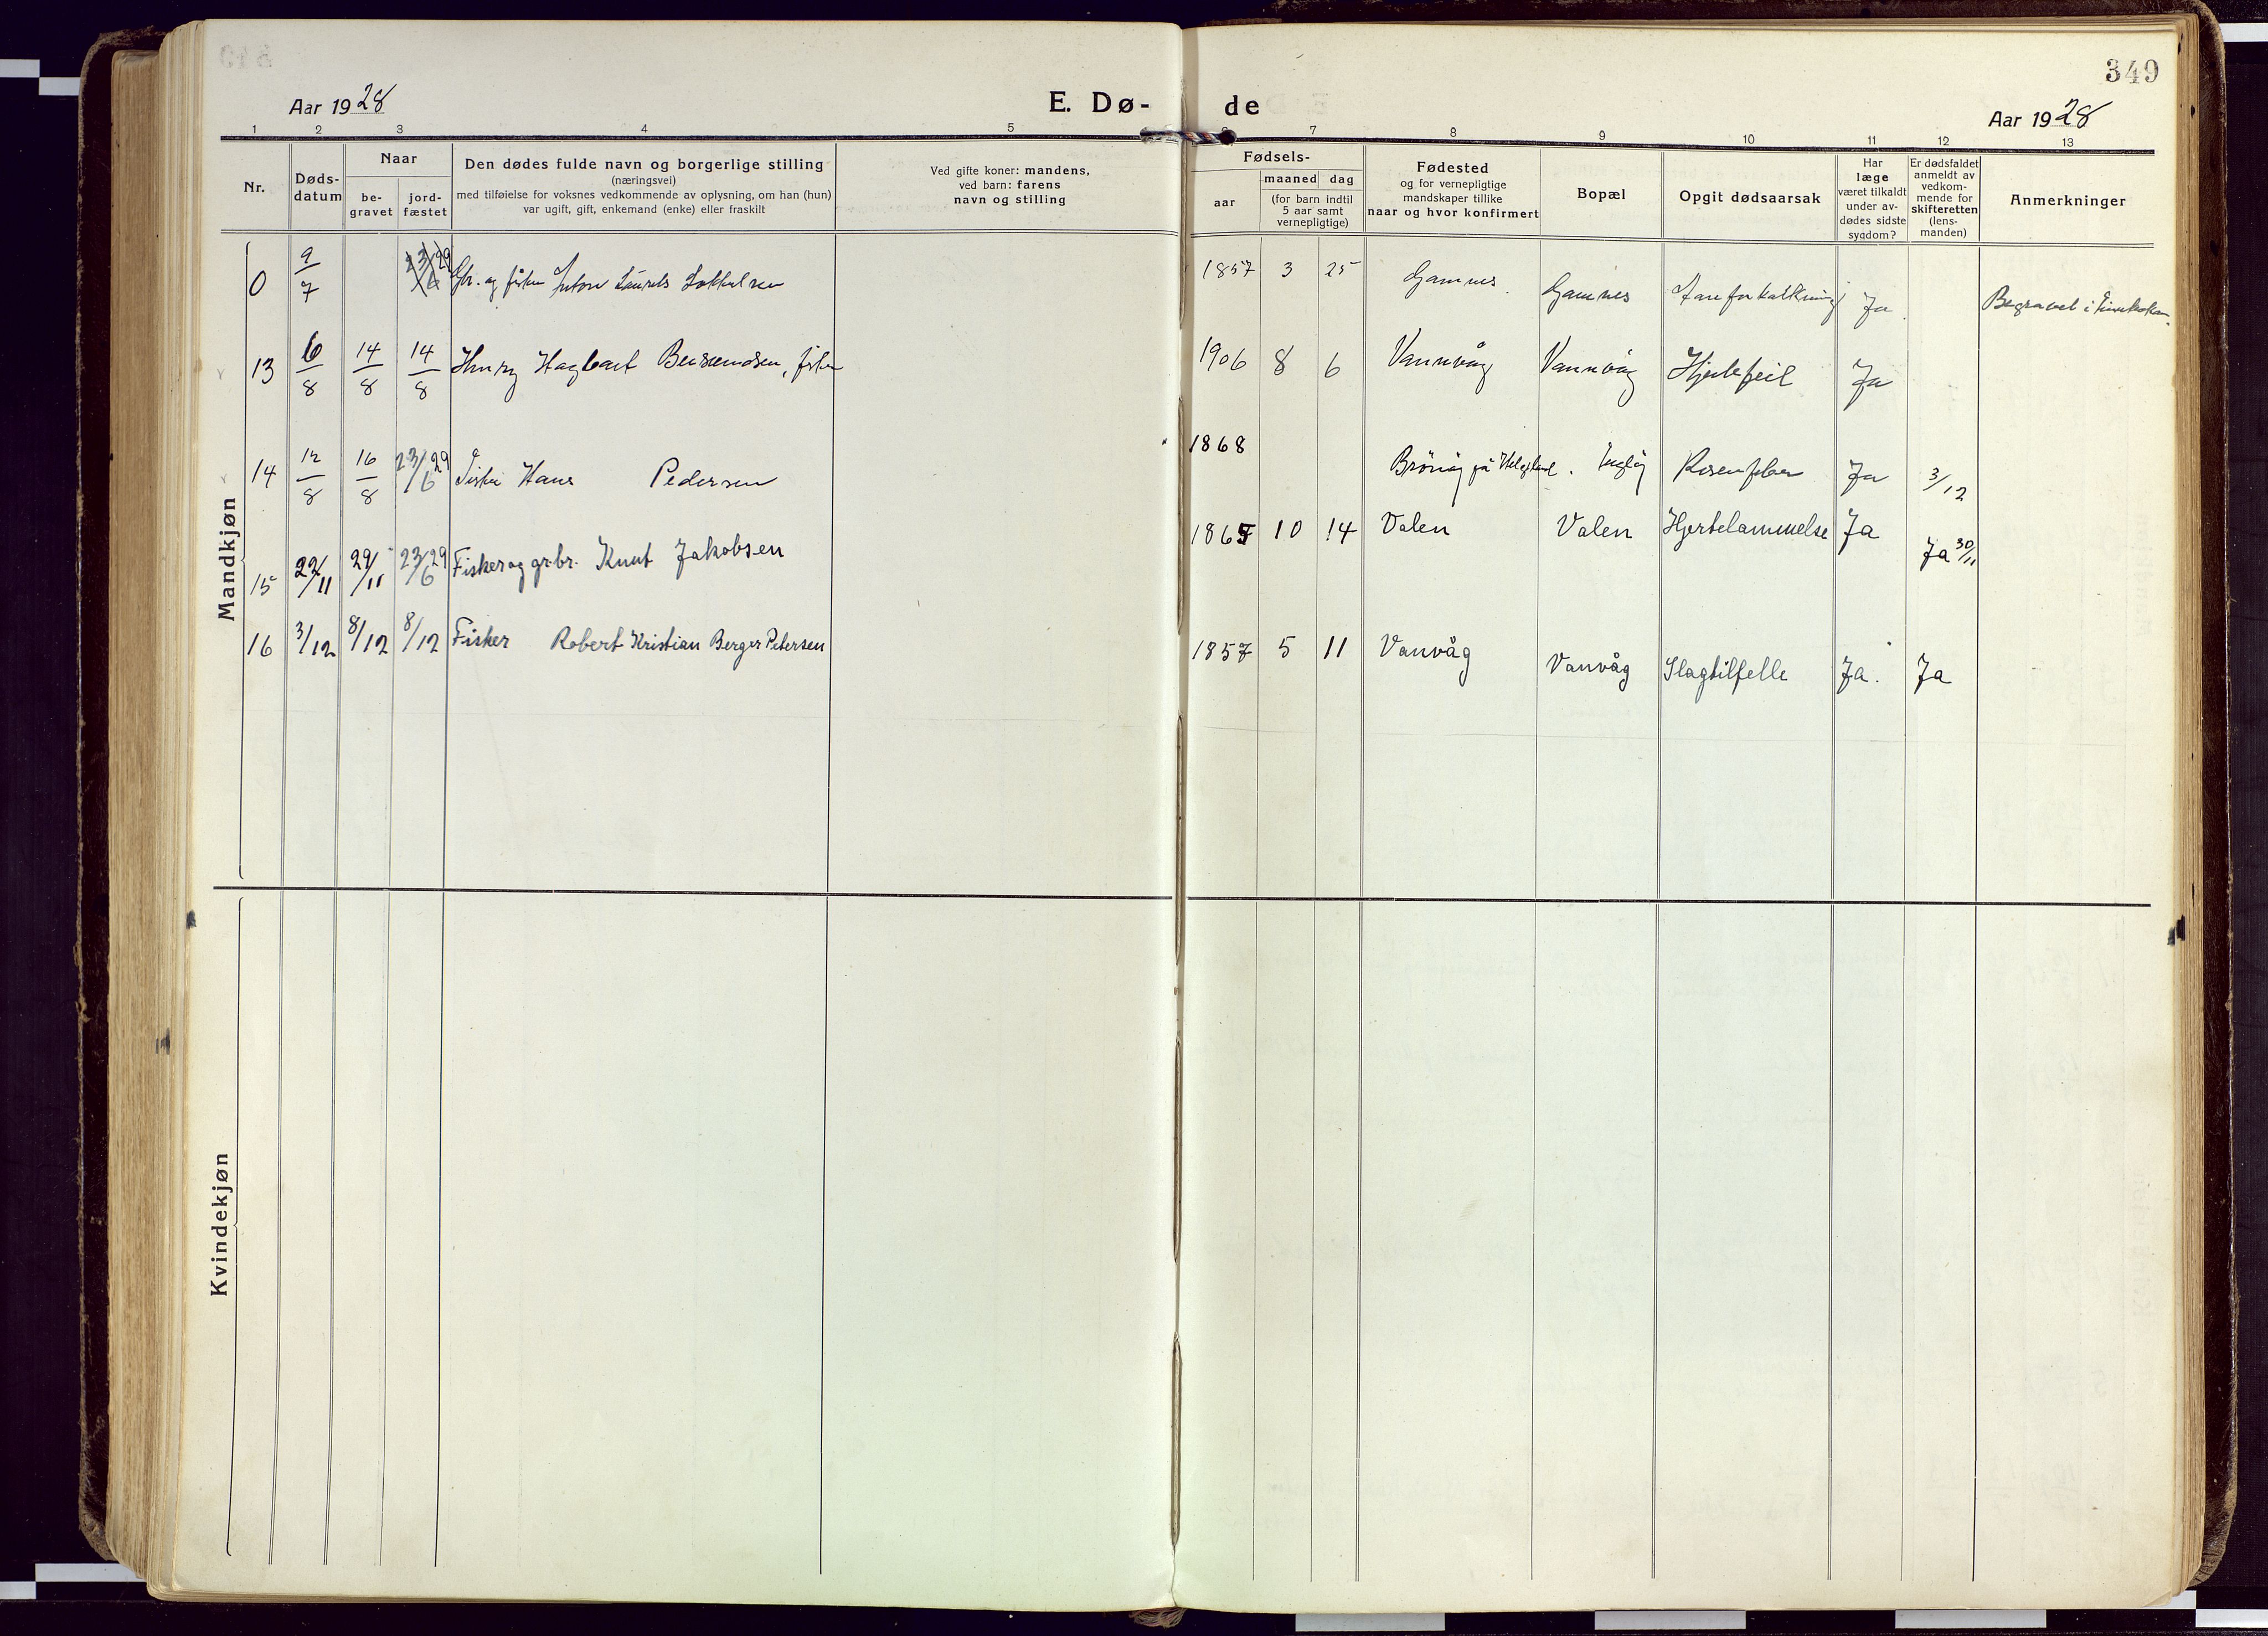 349
Aar 1928
E. Dø-
de
Aar 1928
1 2 3 4 5 6 7 8 9 10 11 12 13
Nr.
Døds-
datum
Naar
be-
gravet
jord-
fæstet
Den dødes fulde navn og borgerlige stilling
(næringsvei)
med tilføielse for voksnes vedkommende av oplysning, om han (hun)
var ugift, gift, enkemand (enke) eller fraskilt
Ved gifte koner: mandens,
ved barn: farens
navn og stilling
Fødsels-
aar
maaned dag
(for barn indtil
5 aar samt
vernepligtige)
Fødested
og for vernepligtige
mandskaper tillike
naar og hvor konfirmert
Bopæl
Opgit dødsaarsak
Har
læge
været tilkaldt
under av-
dødes sidste
sygdom?
Er dødsfaldet
anmeldt av
vedkom-
mende for
skifteretten
(lens-
manden)
Anmerkninger
Mandkjøn
0 9/7 23/6 29 Gbr. og fisker 1857 3 25 Gamnes Gamnes Ja Begravet i
13 6/8 14/8 14/8 Henry Hagbart fisker 1906 8 6 Vannvåg Vannvåg Hjertefeil Ja
14 12/8 16/8 23/6 29 Fisker Hans Pedersen 1868 på Helgeland Ja 3/12
15 22/11 29/11 23/6 29 Fisker og gr.br. Knut Jakobsen 10 14 Valen Valen Hjertelammelse Ja Ja 30/11
16 3/12 8/12 8/12 Fisker Robert Kristian Berger Petersen 1857 5 11 Vanvåg Vanvåg Slagtilfelle Ja. Ja
Kvindekjøn